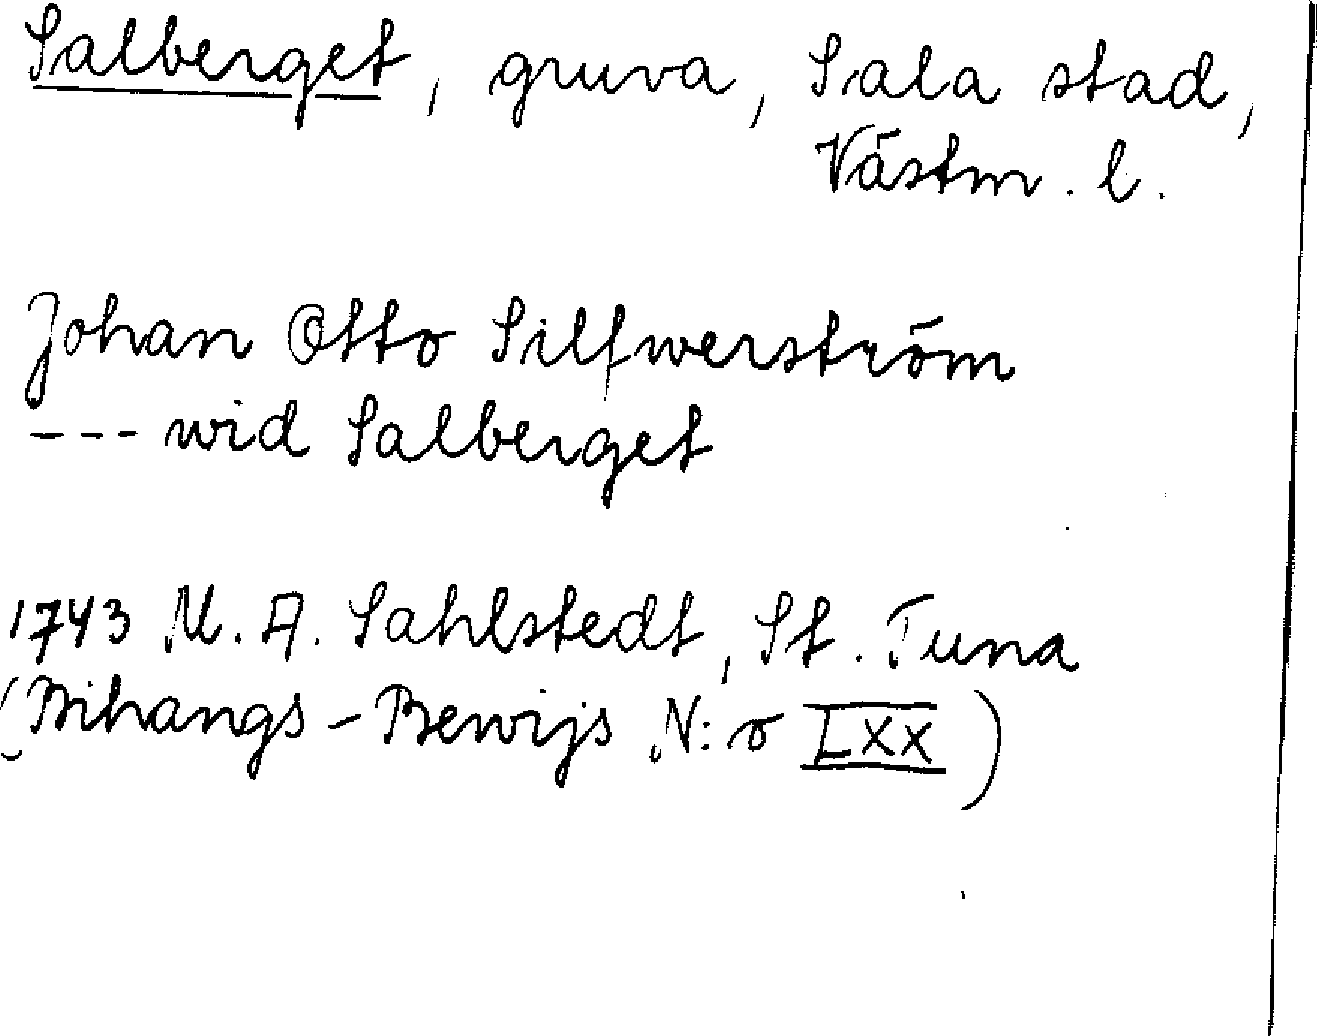 Salberget, gruva, Sala stad,
Västm. l.
Johan Otto Silfwerström
--- wid Salberget
1743 M. A. Sahlstedt, St. Tuna
(Bihangs-Bewijs N:o LXX)